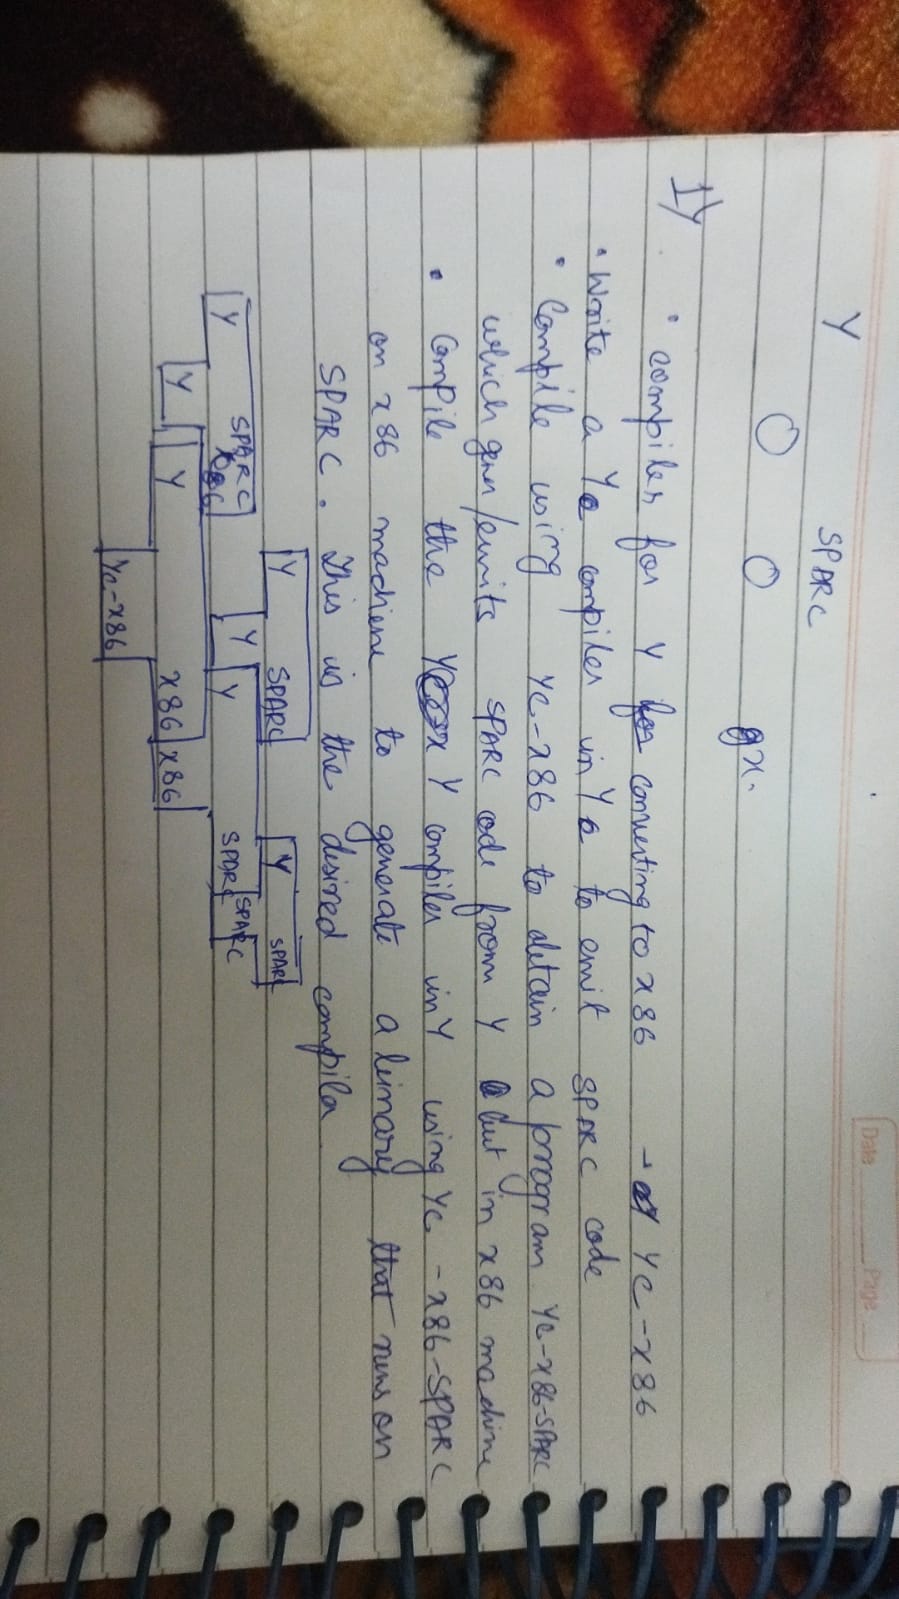 Date Page
Y SPARC
O O gx.
1)
• compiler for Y for converting to x86 → Yc-x86
• Write a Y compiler in Y to emit SPARC code
• Compile using Yc-x86 to obtain a program Yc-x86-SPARC
which gen/emits SPARC code from Y but in x86 machine
• Compile the Y compiler in Y using Yc-x86-SPARC
on x86 machine to generate a binary that runs on
SPARC. This is the desired compiler
Y SPARC Y SPARC
Y SPARC Y Y SPARC SPARC
Y Y x86 x86
Yc-x86